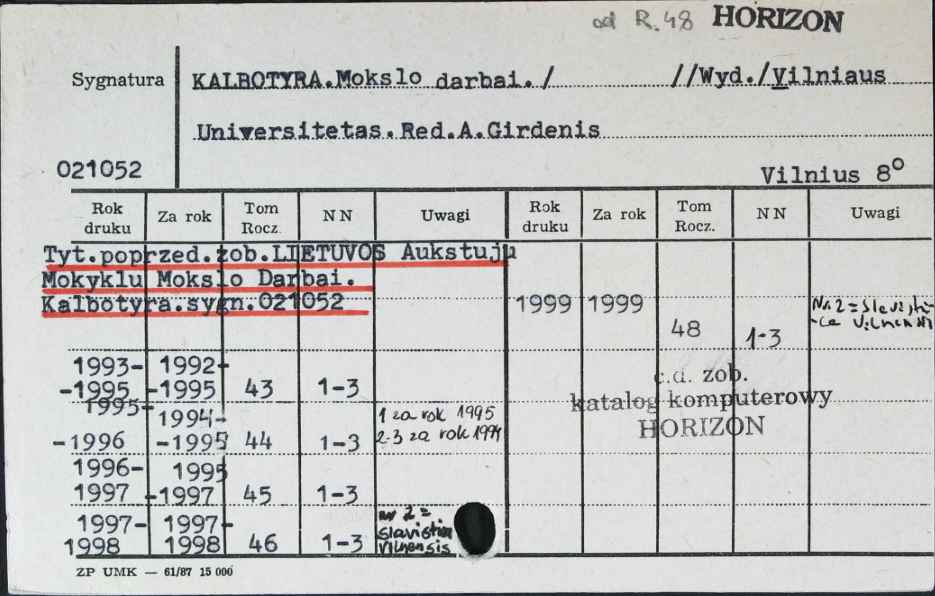 od R.48 HORIZON
Sygnatura
KALBOTYRA.Mokslo darbai./ //Wyd./Vilniaus
Universitetas.Red.A.Girdenis
021052
Vilnius 8°
Rok druku Za rok Tom Rocz. NN Uwagi Rok druku Za rok Tom Rocz. NN Uwagi
Tyt.poprzed.zob.LIETUVOS Aukstuju
Mokyklu Mokslo Darbai.
Kalbotyra.sygn.021052
1999 1999 48 1-3 Nr 2 = Slavisti-
-ca Vilnensis
1993- 1992-
-1995 -1995 43 1-3
c.d. zob.
katalog komputerowy
HORIZON
1995- 1994- 1 za rok 1995
-1996 -1995 44 1-3 2-3 za rok 1994
1996- 1995
1997 -1997 45 1-3
1997- 1997- nr 2 =
1998 1998 46 1-3 slavistica
vilnensis
ZP UMK — 61/87 15 000